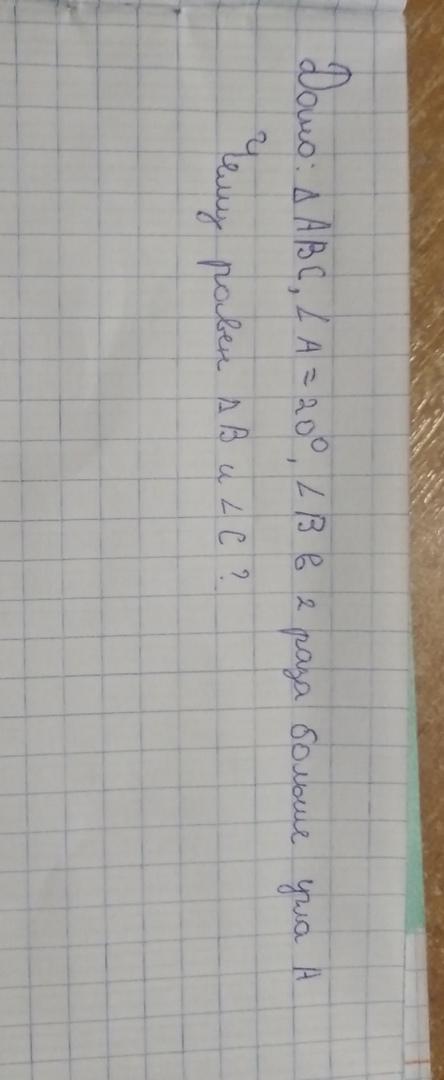 Дано: Δ ABC, ∠ A = 20°, ∠B в 2 раза больше угла A
Чему равен Δ B и ∠ C ?